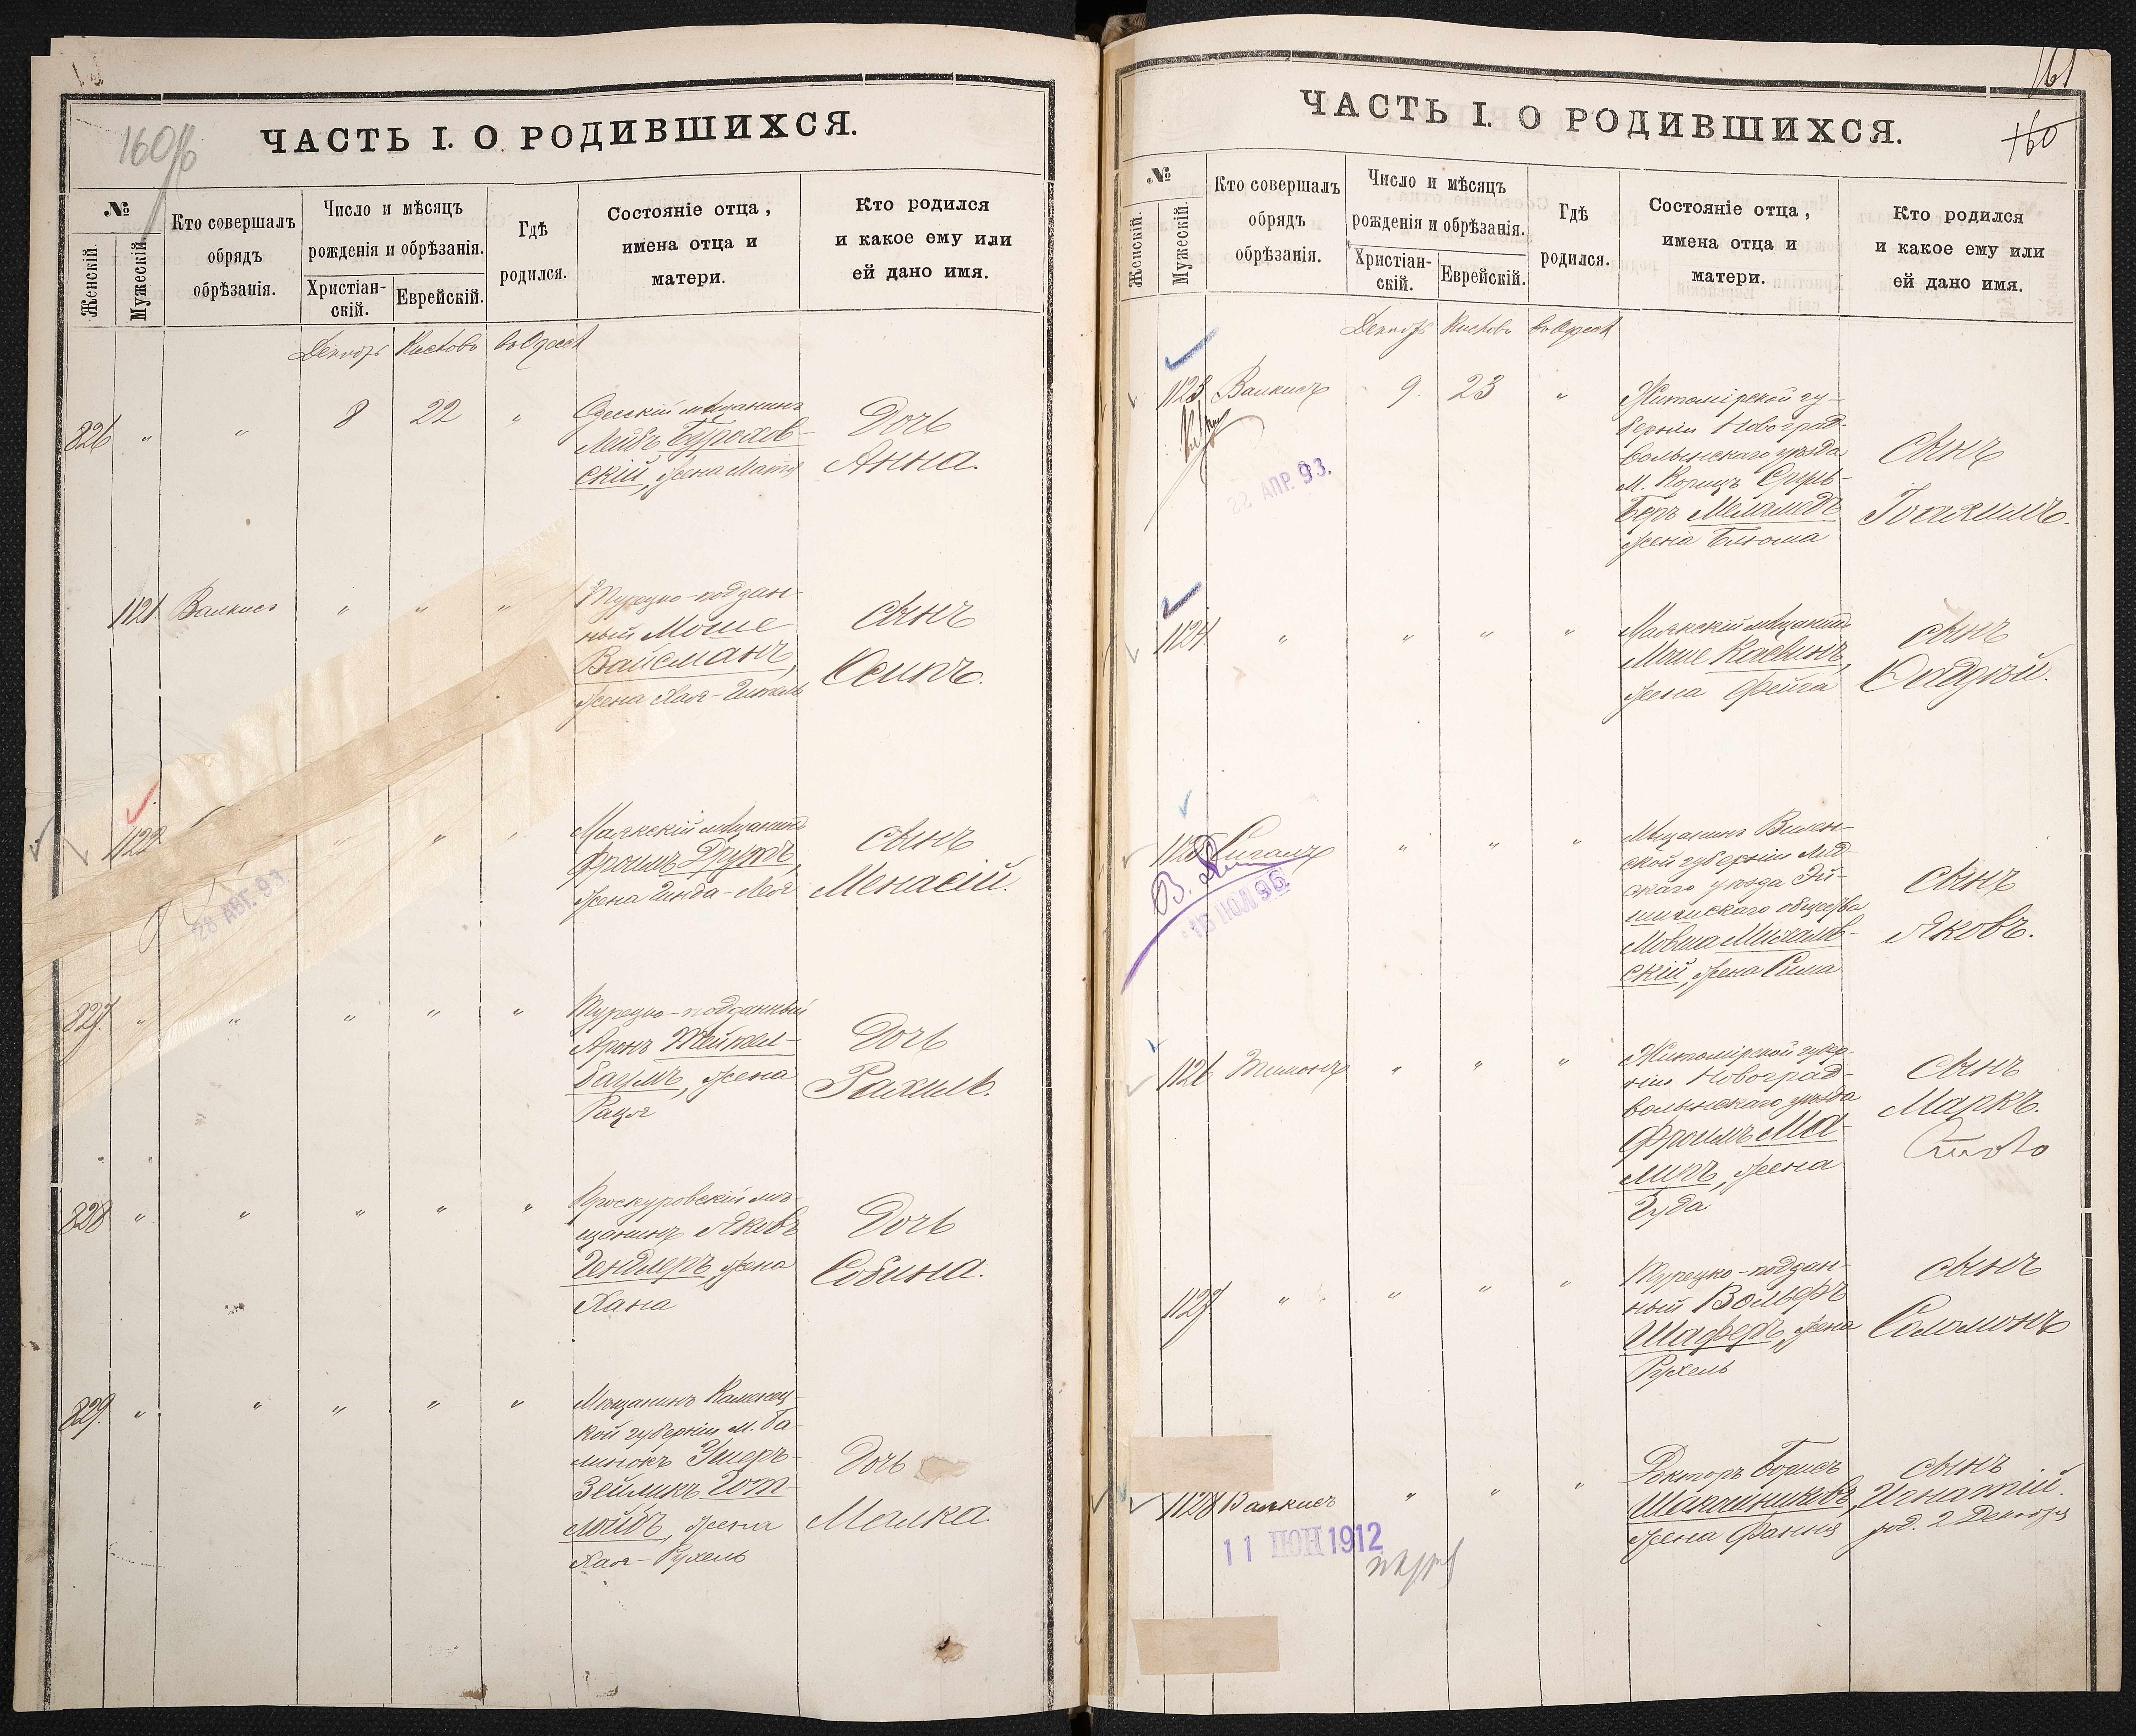 160об
ЧАСТЬ I. О РОДИВШИХСЯ.
№
Женскій.
Мужескій.
Кто совершалъ
обрядъ
обрѣзанія.
Число и мѣсяцъ
рожденія и обрѣзанія.
Христіан-
скій.
Еврейскій.
Гдѣ
родился.
Состояніе отца,
имена отца и
матери.
Кто родился
и какое ему или
ей дано имя.
Декабрь Кислевъ въ Одессѣ
826 " " 8 22 "
Одесскій мѣщанинъ
Лейбъ Бурохов-
скій, жена
Дочь
Анна.
1121 Валкисъ " " "
Турецко-поддан-
ный Моше
Вайсманъ,
жена Хая-
сынъ
Осипъ.
1122 " " "
28 АВГ. 93
Маякскій мѣщанинъ
Фроимъ Друкъ,
жена Гинда-Лея
сынъ
Менасій.
827. " " " " "
Турецко-подданный
Аронъ Тейтел-
баумъ, жена
Рация
Дочь
Рахиль.
828 " " " " "
Проскуровскій мѣ-
щанинъ Яковъ
Гендлеръ, жена
Хана
Дочь
Собина.
829. " " " " "
Мѣщанинъ Каменец-
кой губерніи м. Ба-
линокъ Ушеръ-
Зейликъ Гот-
лойбъ, жена
Хая-Рухель
Дочь
Малка.
161
160
ЧАСТЬ I. О РОДИВШИХСЯ.
№
Женскій.
Мужескій.
Кто совершалъ
обрядъ
обрѣзанія.
Число и мѣсяцъ
рожденія и обрѣзанія.
Христіан-
скій.
Еврейскій.
Гдѣ
родился.
Состояніе отца,
имена отца и
матери.
Кто родился
и какое ему или
ей дано имя.
Декабрь Кислевъ въ Одессѣ
1123 Валкисъ 9. 23 "
22 АПР. 93.
Житомірской гу-
берніи Новоград-
волынскаго уѣзда
М. Корицъ Сруль-
Беръ Меламедъ
жена Блюма
сынъ
Іоахимъ.
1124 " " " "
Маякскій мѣщанинъ
Моше Касвинъ,
жена Фейга
сынъ
Овадзій.
1125 Сигалъ " " "
16 ІЮЛ 96
Мѣщанинъ Вилен-
ской губерніи Лид-
скаго уѣзда Эй-
шишскаго общества
Мовша Михалов-
скій, жена Сима
сынъ
Яковъ.
1126 Тимонъ " " "
Житомірской губер-
ніи Новоград-
волынскаго уѣзда
Фроимъ Ма-
лиръ, жена
Гуда
сынъ
Маркъ.
1127 " " " "
Турецко-поддан-
ный Вольфъ
Шаферъ, жена
Рухель
сынъ
Соломонъ
1128 Валкисъ " " "
11 ІЮН 1912
Докторъ Борисъ
Шапчниковъ,
жена Фання
сынъ
Игнатій.
род. 2 Декабря